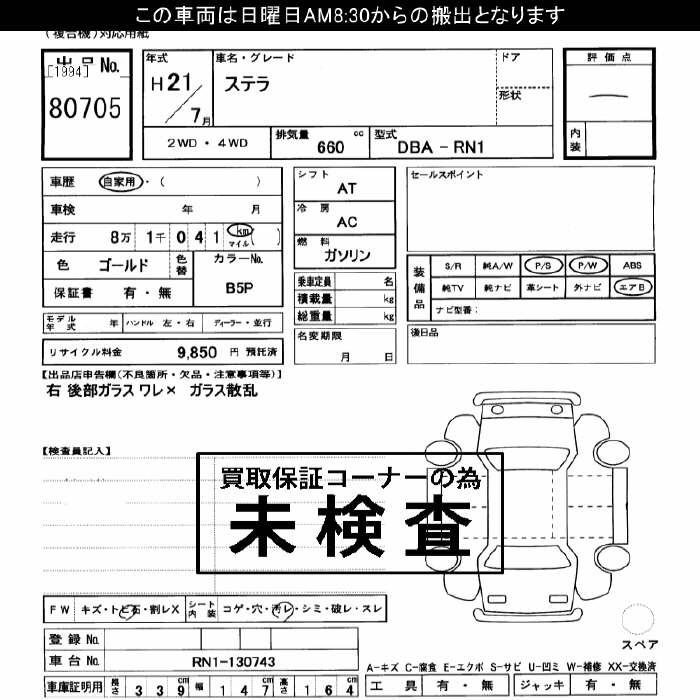 この車両は日曜日AM8:30からの搬出となります
(複合機)対応用紙
出品No.
[1994]
80705
年式
H21/7月
車名・グレード
ステラ
ドア
形状
評価点
内装
2WD・4WD
排気量 660 cc
型式 DBA－RN1
車歴 自家用・( )
車検 年 月
走行 8万 1千 0 4 1 km マイル ( )
色 ゴールド 色替
カラーNo.
B5P
保証書 有・無
シフト
AT
冷房
AC
燃料
ガソリン
乗車定員 名
積載量 kg
総重量 kg
名変期限
月 日
セールスポイント
装備品
S/R 純A/W P/S P/W ABS
純TV 純ナビ 革シート 外ナビ エアB
ナビ型番:
後日品
モデル年式 年 ハンドル 左・右 ディーラー・並行
リサイクル料金 9,850 円 預託済
【出品店申告欄(不良箇所・欠品・注意事項等)】
右 後部ガラス ワレ× ガラス散乱
【検査員記入】
買取保証コーナーの為
未検査
FW キズ・トビ石・割レX シート内装 コゲ・穴・汚レ・シミ・破レ・スレ
登録No.
車台No. RN1-130743
車庫証明用 長さ 339cm 幅 147cm 高さ 164cm
スペア
A-キズ C-腐食 E-エクボ S-サビ U-凹ミ W-補修 XX-交換済
工具 有・無 ジャッキ 有・無